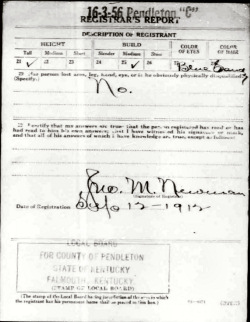 16-3-56 Pendleton
REGISTRAR'S REPORT
DESCRIPTION OF REGISTRANT
HEIGHT BUILD COLOR OF EYES COLOR OF HAIR
Tall Medium Short Slender Medium Stout
21 ✓ 22 23 24 25 ✓ 26 27 Blue
29 Has person lost arm, leg, hand, eye, or is he obviously physically disqualified?
(Specify.)
No.
30 I certify that my answers are true; that the person registered has read or has
had read to him his own answers; that I have witnessed his signature or mark,
and that all of his answers of which I have knowledge are true, except as follows:
Jno. M. Newman
(Signature of Registrar)
Date of Registration
LOCAL BOARD
FOR COUNTY OF PENDLETON
STATE OF KENTUCKY
FALMOUTH, KENTUCKY.
(STAMP OF LOCAL BOARD)
(The stamp of the Local Board having jurisdiction of the area in which
the registrant has his permanent home shall be placed in this box.)